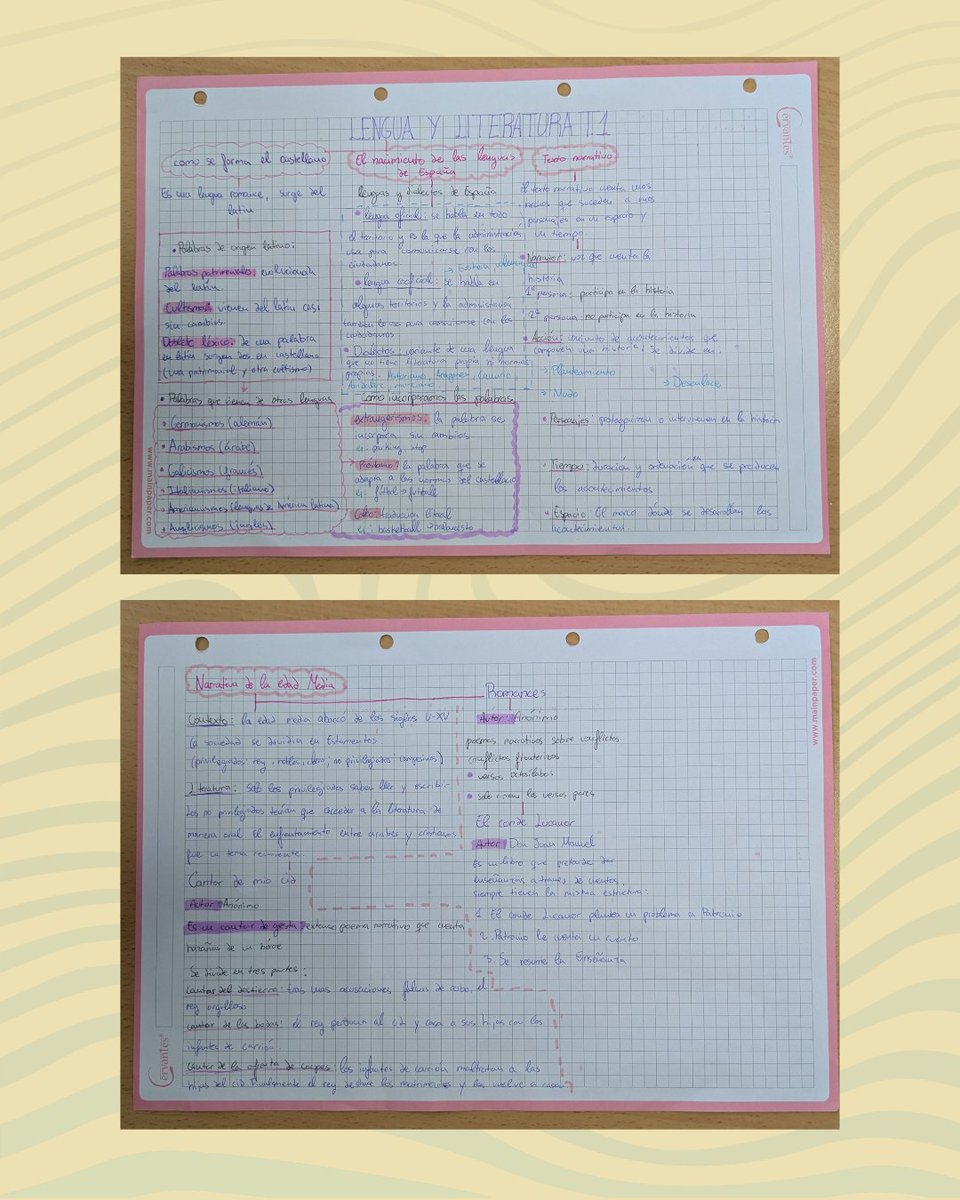 LENGUA Y LITERATURA T.1
como se forma el castellano
Es una lengua romance, surge del
latín
• Palabras de origen latino:
Palabras patrimoniales: evolucionan
del latín.
Cultismos: vienen del latín casi
sin cambios.
Doblete léxico: de una palabra
en latín surgen dos en castellano
(una patrimonial y otra cultismo)
• Palabras que vienen de otras lenguas
• Germanismos (alemán)
• Arabismos (árabe)
• Galicismos (francés)
• Italianismos (italiano)
• Americanismos (lenguas de América latina)
• Anglicismos (inglés)
El nacimiento de las lenguas
de España
lenguas y dialectos de España
• lengua oficial: se habla en todo
el territorio y es la que la administración
usa para comunicarse con los
ciudadanos
• lengua cooficial: se habla en
algunos territorios y la administración
también la usa para comunicarse con los
ciudadanos
• Dialectos: variante de una lengua
que no tiene literatura propia ni normas
propias. Asturiano, Aragonés, Canario
Andaluz, murciano
Como incorporamos las palabras
extranjerismos: la palabra se
incorpora sin cambios
ej: parking, stop
Préstamo: la palabra que se
adapta a las normas del castellano
ej: fútbol → football
Calco: traducción literal
ej: basketball → baloncesto
Texto narrativo
El texto narrativo cuenta unos
hechos que suceden a unos
personajes en un espacio y
un tiempo
• Narrador: voz que cuenta la
historia
1ª persona: participa en la historia
no participa en la historia
• Acción: conjunto de acontecimientos que
componen una historia. Se divide en:
→ Planteamiento
→ Desenlace
→ Nudo
• Personajes: protagonizan o intervienen en la historia
• Tiempo: duración y ordenación en que se producen
los acontecimientos
• Espacio: El marco donde se desarrollan los
acontecimientos
Cervantes
www.mainpaper.com
Narrativa de la edad Media
Contexto: la edad media abarcó de los siglos V-XV
La sociedad se dividía en Estamentos
(privilegiados: rey, nobles, clero; no privilegiados: campesinos)
Literatura: Solo los privilegiados sabían leer y escribir.
Los no privilegiados tenían que acceder a la literatura de
manera oral. El enfrentamiento entre árabes y cristianos
fue un tema recurrente.
Cantar de mio cid
Autor: Anónimo
Es un cantar de gesta: extenso poema narrativo que cuenta
hazañas de un héroe
Se divide en tres partes:
cantar del destierro: tras unas acusaciones falsas de robo, el
rey
cantar de las bodas: el rey perdona al cid y casa a sus hijas con los
infantes de carrión.
Cantar de la afrenta de corpes: los infantes de carrión maltratan a las
hijas del cid. Finalmente el rey los matrimonios y las vuelve a casar.
Romances
Autor: Anónimo
poemas narrativos sobre conflictos
conflictos fronterizos
• versos octosílabos
• solo riman los versos pares
El conde Lucanor
Autor: Don Juan Manuel
Es un libro que pretende dar
enseñanzas a través de cuentos.
siempre tienen la misma estructura:
1. El conde Lucanor plantea un problema a Patronio
2. Patronio le cuenta un cuento
3. Se resume la Enseñanza
Cervantes
www.mainpaper.com